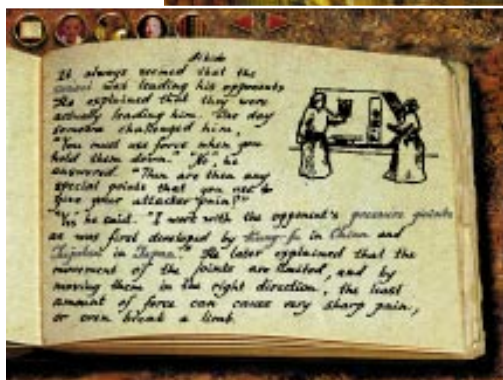 Aikido
It always seemed that the
sensei was leading his opponents
He explained that they were
actually leading him. One day
someone challenged him,
"You must use force when you
hold them down." "No", he
answered. "Then are there any
special points that you use to
give your attacker pain?"
"Yes" he said. "I work with the opponent's pressure points
as was first developed by Kung-fu in China and
in Japan." He later explained that the
movement of the joints are limited, and by
moving them in the right direction, the least
amount of force can cause very sharp pain,
or even break a limb.